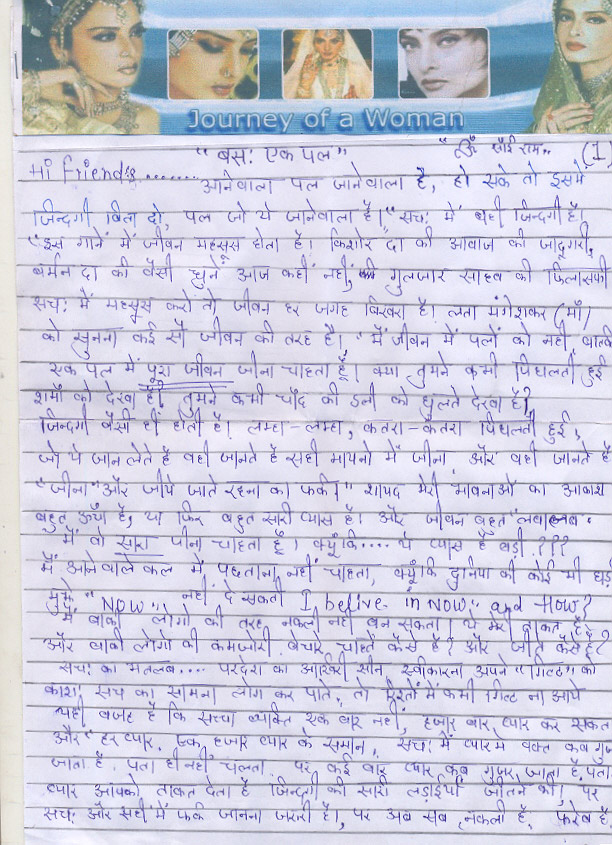 Journey of a Woman
"बस: एक पल" ॐ साँई राम (1)
Hi Friend's ........
आनेवाला पल जानेवाला है, हो सके तो इसमें
जिन्दगी बिता दो, पल जो ये जानेवाला है।" सच: में यही जिन्दगी है।
"इस गाने में जीवन महसूस होता है। किशोर दा की आवाज की जादूगरी,
बर्मन दा की वैसी धुने आज कहीं नहीं, गुलजार साहब की फिलासफी
सच: में महसूस करो तो जीवन हर जगह बिखरा है। लता मंगेशकर (माँ)
को सुनना कई सौ जीवन की तरह है। "मैं जीवन में पलों को नहीं, बल्कि
एक पल में पूरा जीवन जीना चाहता हूँ। क्या तुमने कभी पिघलती हुई
शमाँ को देखा है? तुमने कभी चाँद की डली को घुलते देखा है?
जिन्दगी वैसी ही होती है। लम्हा-लम्हा, कतरा-कतरा पिघलती हुई,
जो ये जान लेते है वही जानते है सही मायनो में जीना और वही जानते है
"जीना" और जीये जाते रहना का फर्क।" शायद मेरी भावनाओं का आकाश
बहुत ऊँचा है, या फिर बहुत सारी प्यास है। और जीवन बहुत "लबालब"
मैं वो सारा पीना चाहता हूँ। क्यूँकि.... ये प्यास है बड़ी.???
मैं आनेवाले कल में पछताना नहीं चाहता, क्यूँकि दुनिया की कोई भी घड़ी
मुझे "NOW" नहीं दे सकती I belive in NOW" and How?
मैं बाकी लोगों की तरह नकली नहीं बन सकता। ये मेरी ताकत है
और बाकी लोगो की कमजोरी. बेचारे चाहते कैसे है? और जीते कैसे है?
सच: का मतलब.... परदेश का आखिरी सीन, स्वीकारना अपने "गिल्ट" को
काश: सच का सामना लोग कर पाते, तो रिश्तों में कभी गिल्ट ना आये
यही वजह है कि सच्चा व्यक्ति एक बार नहीं, हजार बार प्यार कर सकता
और "हर प्यार. एक हजार प्यार के समान. सच: में प्यार में वक्त कब गुजर
जाता है. पता ही नहीं चलता. पर कई बार प्यार कब गुजर जाता है. पता
प्यार आपको ताकत देता है जिन्दगी की सारी लड़ाईयाँ जीतने की। पर
सच: और सही में फर्क जानना जरुरी है।, पर अब सब नकली है. फरेब है.